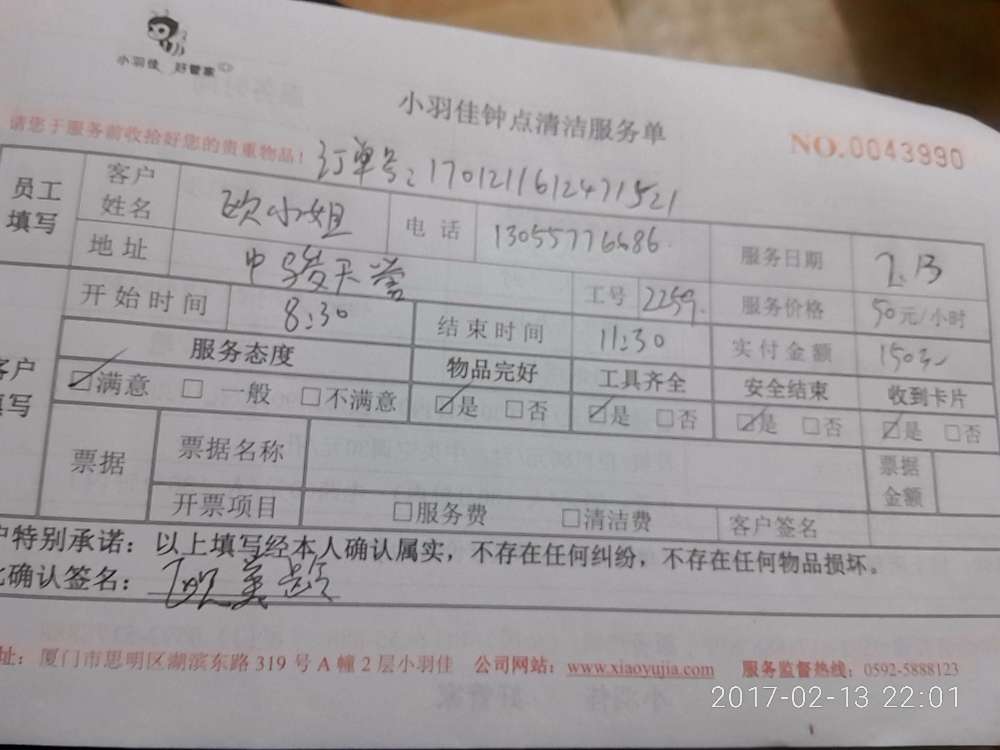 小羽佳 好管家
小羽佳钟点清洁服务单
请您于服务前收拾好您的贵重物品!
NO.0043990
订单号:1701211612471521
员工填写 客户姓名 欧小姐 电话 13055776686 服务日期 2.13
地址 中骏天誉 工号 2259 服务价格 50元/小时
开始时间 8:30 结束时间 11:30 实付金额 150元
服务态度 物品完好 工具齐全 安全结束 收到卡片
☑满意 □一般 □不满意 ☑是 □否 ☑是 □否 ☑是 □否 ☑是 □否
客户填写
票据 票据名称 票据金额
开票项目 □服务费 □清洁费 客户签名
户特别承诺:以上填写经本人确认属实,不存在任何纠纷,不存在任何物品损坏。
确认签名:欧美
址:厦门市思明区湖滨东路 319 号 A 幢 2 层小羽佳 公司网站:www.xiaoyujia.com 服务监督热线:0592-5888123
2017-02-13 22:01